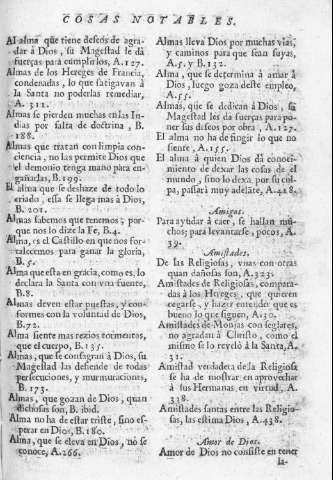 COSAS NOTABLES.
Al alma que tiene deseos de agra-
dar à Dios, su Magestad le dà
fuerças para cumplirlos, A.127.
Almas de los Hereges de Francia,
condenadas, lo que fatigavan à
la Santa no poderlas remediar,
A. 311.
Almas se pierden muchas en las In-
dias por falta de doctrina, B.
188.
Almas que tratan con limpia con-
ciencia, no las permite Dios que
el demonio tenga mano para en-
gañarlas, B.199.
El alma que se deshaze de todo lo
criado, essa se llega mas à Dios,
B. 201.
Almas sabemos que tenemos, por-
que nos lo dize la Fe, B.4.
Alma, es el Castillo en que nos for-
talecemos para ganar la gloria,
B.5.
Alma que esta en gracia, como es, lo
declara la Santa con una fuente,
B.8.
Almas deven estar puestas, y con-
formes con la voluntad de Dios,
B.72.
Alma siente mas rezios tormentos,
que el cuerpo, B.135.
Almas, que se consagran à Dios, su
Magestad las defiende de todas
persecuciones, y murmuraciones,
B.173.
Almas, que gozan de Dios, quan
dichosas son, B. ibid.
Alma no ha de estar triste, sino es-
perar en Dios, B.180.
Alma, que se eleva en Dios, no se
conoce, A.266.
Almas lleva Dios por muchas vias,
y caminos para que sean suyas,
A.5. y B.132.
Alma, que se determina à amar à
Dios, luego goza deste empleo,
A.55.
Almas, que se dedican à Dios, su
Magestad les dà fuerças para po-
ner sus deseos por obra, A.127.
El alma no ha de fingir lo que no
siente, A.155.
El alma à quien Dios dà conoci-
miento de dexar las cosas de el
mundo, sino lo dexa, por su cul-
pa, passarà muy adelàte, A.418.
Amigos.
Para ayudar à caer, se hallan mu-
chos; para levantarse, pocos, A.
39.
Amistades.
De las Religiosas, unas con otras
quan dañosas son, A.323.
Amistades de Religiosas, compara-
das à los Hereges, que quieren
cegarse, y hazer entender que es
bueno lo que siguen, A.30.
Amistades de Monjas con seglares,
no agradan à Christo, como el
mismo se lo revelò à la Santa, A.
31.
Amistad verdadera de la Religiosa
se ha de mostrar en aprovechar
à sus Hermanas en virtud, A.
338.
Amistades santas entre las Religio-
sas, las estima Dios, A.438.
Amor de Dios.
Amor de Dios no consiste en tener
la-